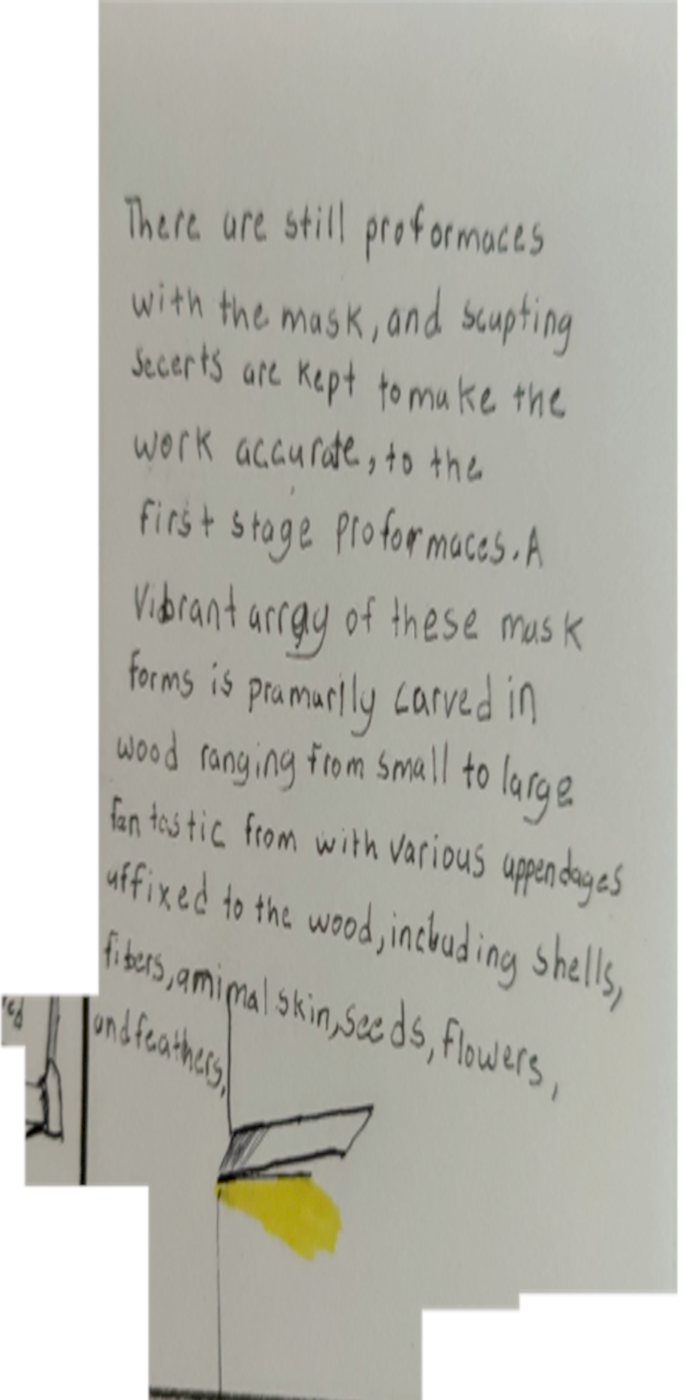 There are still proformaces
with the mask, and scupting
secerts are kept to make the
work accurate, to the
first stage proformaces. A
Vibrant array of these mask
forms is pramarily carved in
wood ranging from small to large
fantastic from with various appendages
affixed to the wood, including shells,
fibers, amimal skin, seeds, flowers,
and feathers.